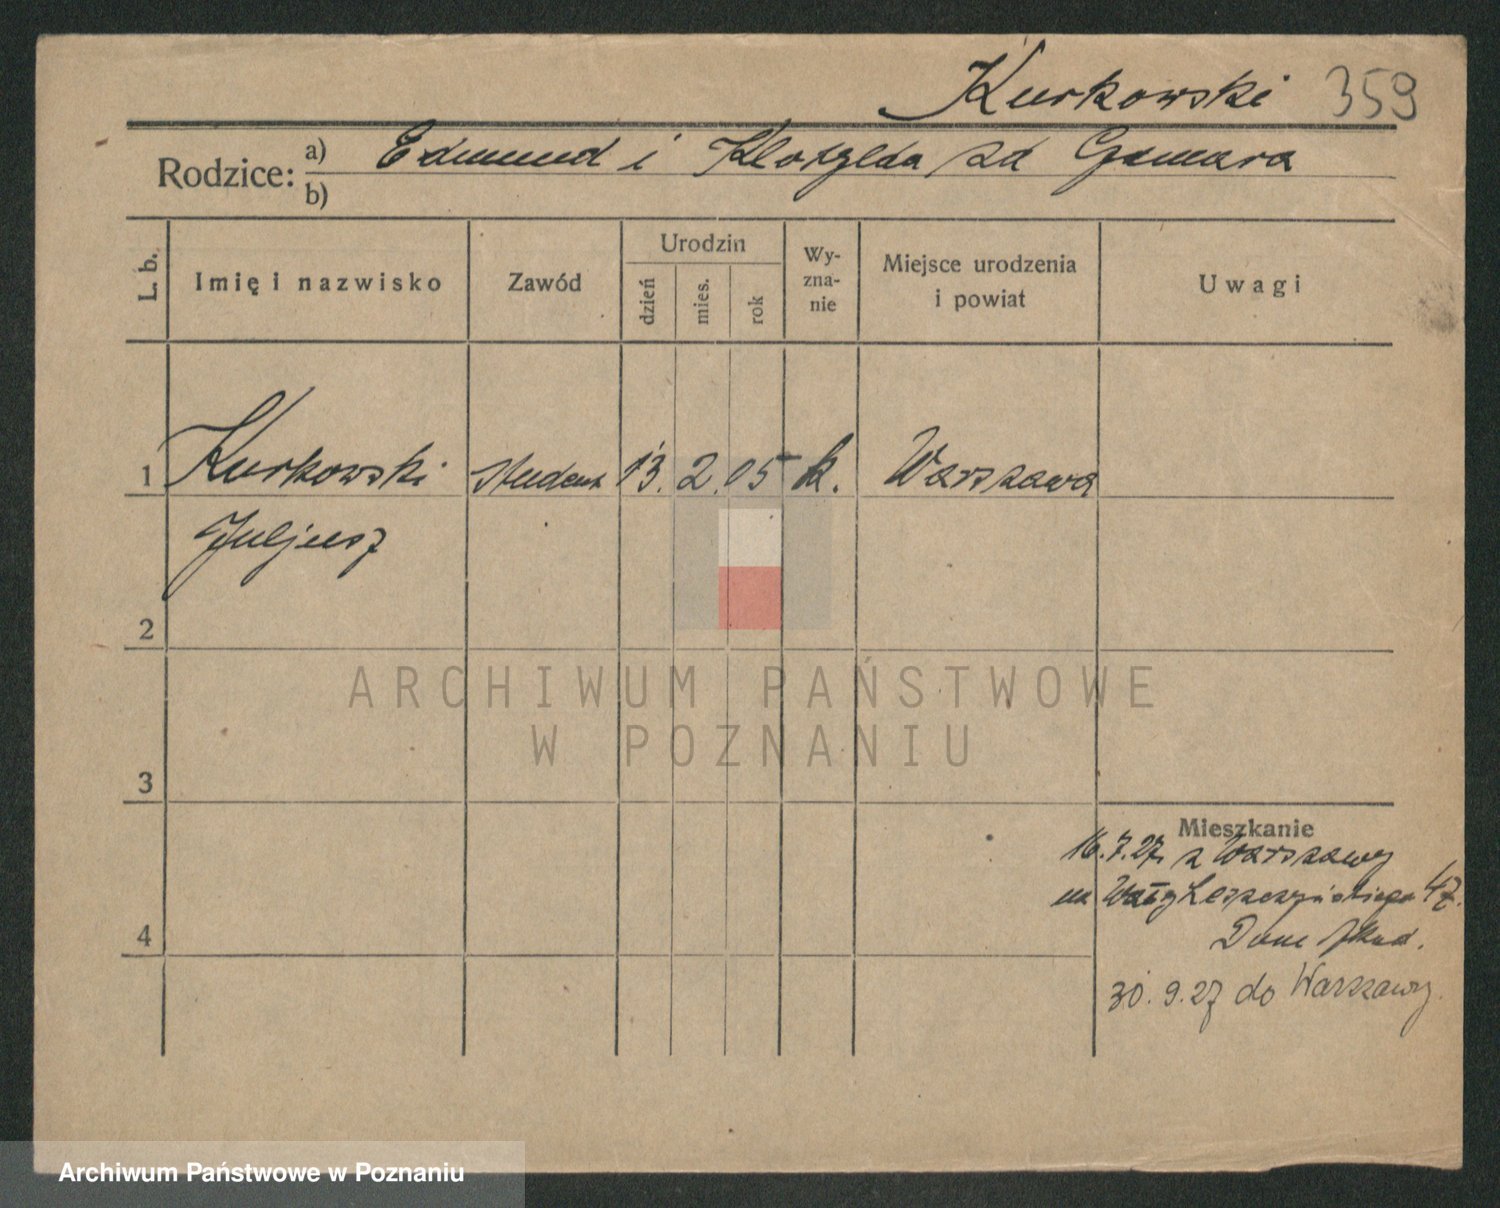 Kurkowski 359
Rodzice: a) Edmund i Klotylda zd Gamara
b)
L. b. Imię i nazwisko Zawód Urodzin dzień mies. rok Wyznanie Miejsce urodzenia i powiat Uwagi
1 Kurkowski student 13. 2. 05 k. Warszawa
Juljusz
2
3
4
Mieszkanie
16.7.27. z Warszawy
na Wały Leszczyńskiego 47.
Dom Akad.
30.9.27 do Warszawy.
ARCHIWUM PAŃSTWOWE
W POZNANIU
Archiwum Państwowe w Poznaniu